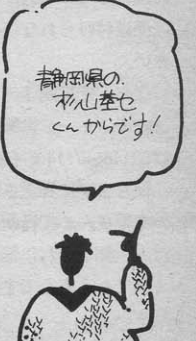 静岡県の
杉山基セ
くんからです!